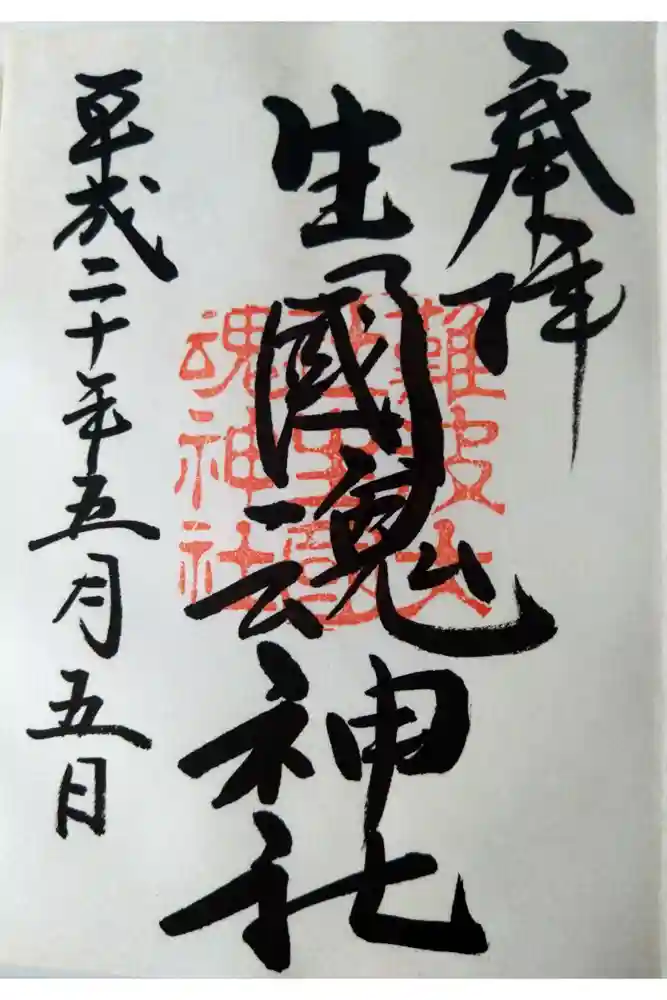 奉拝
生國魂神社
平成二十年五月五日
難波大
社生國
魂神社